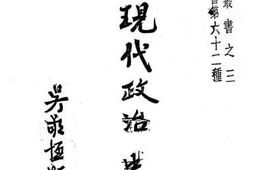 叢書之三
書第六十二種
現代政治
吳敬恆